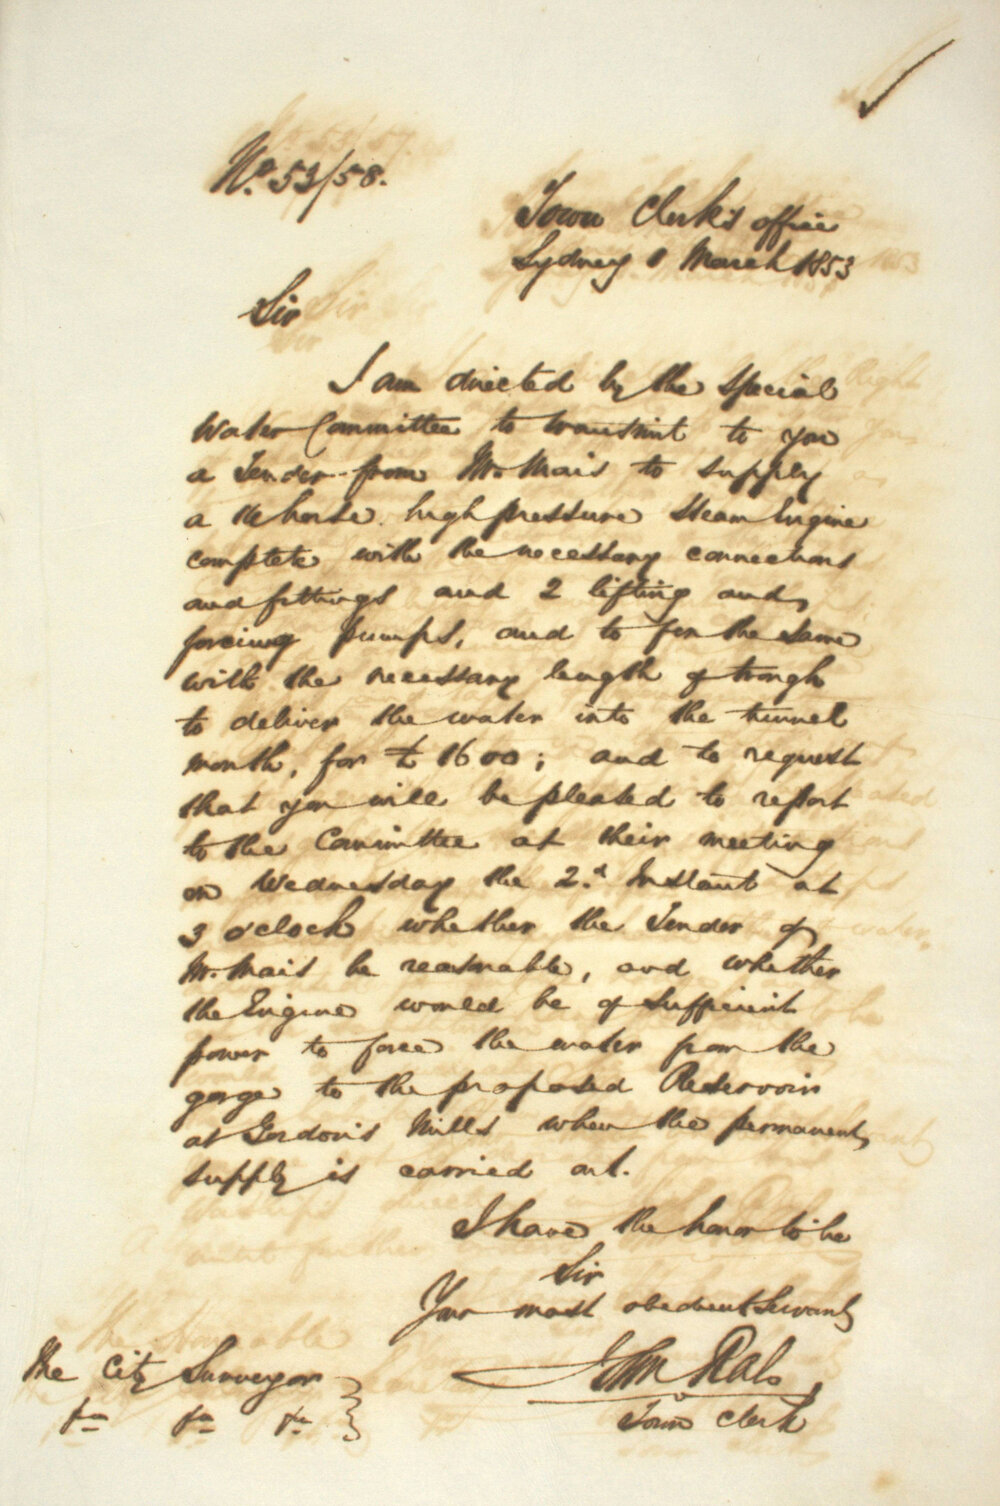 No. 53/58.
Town Clerk's office
Sydney 1 March 1853
Sir
I am directed by the Special
Water Committee to transmit to you
a Tender from Mr Mais to supply
a 16 horse high pressure Steam Engine
complete with the necessary connections
and fittings and 2 lifting and
forcing pumps, and to fix the same
with the necessary length of trough
to deliver the water into the tunnel
mouth, for £1600; and to request
that you will be pleased to report
to the Committee at their meeting
on Wednesday the 2.d Instant at
3 o'clock whether the Tender of
Mr. Mais be reasonable, and whether
the Engine would be of sufficient
power to force the water from the
gorge to the proposed Reservoir
at Gordon's Mills when the permanent
supply is carried out.
I have the honor to be
Sir
Your most obedient Servant
John Rae
Town Clerk
The City Surveyor